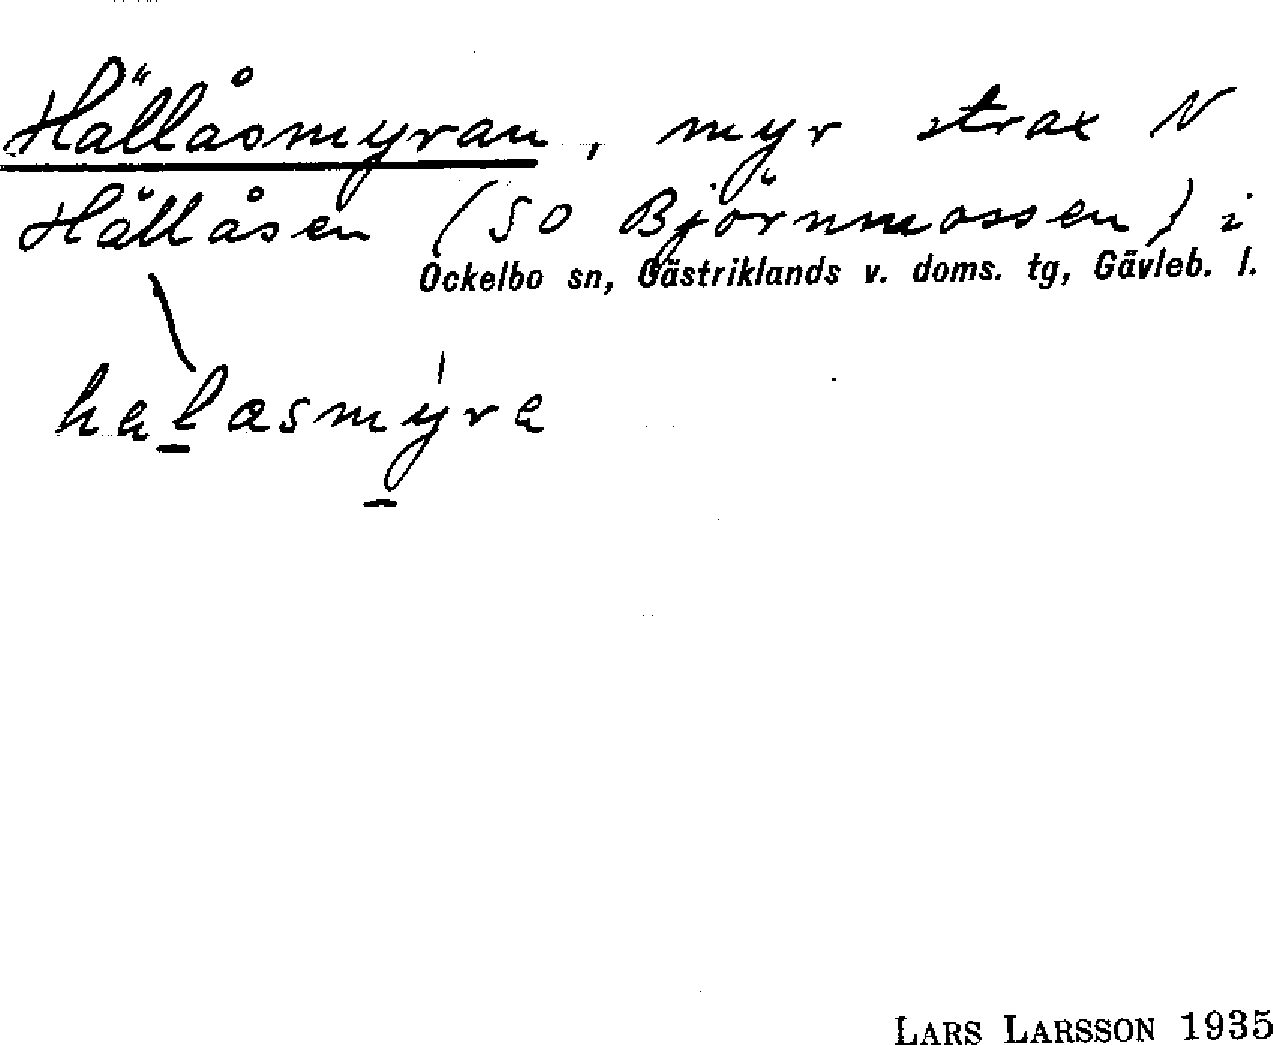 Hällåsmyran, myr strax N
Hällåsen (SO Björnmossen) i
Ockelbo sn, Gästriklands v. doms. tg, Gävleb. l.
halasmyra
LARS LARSSON 1935